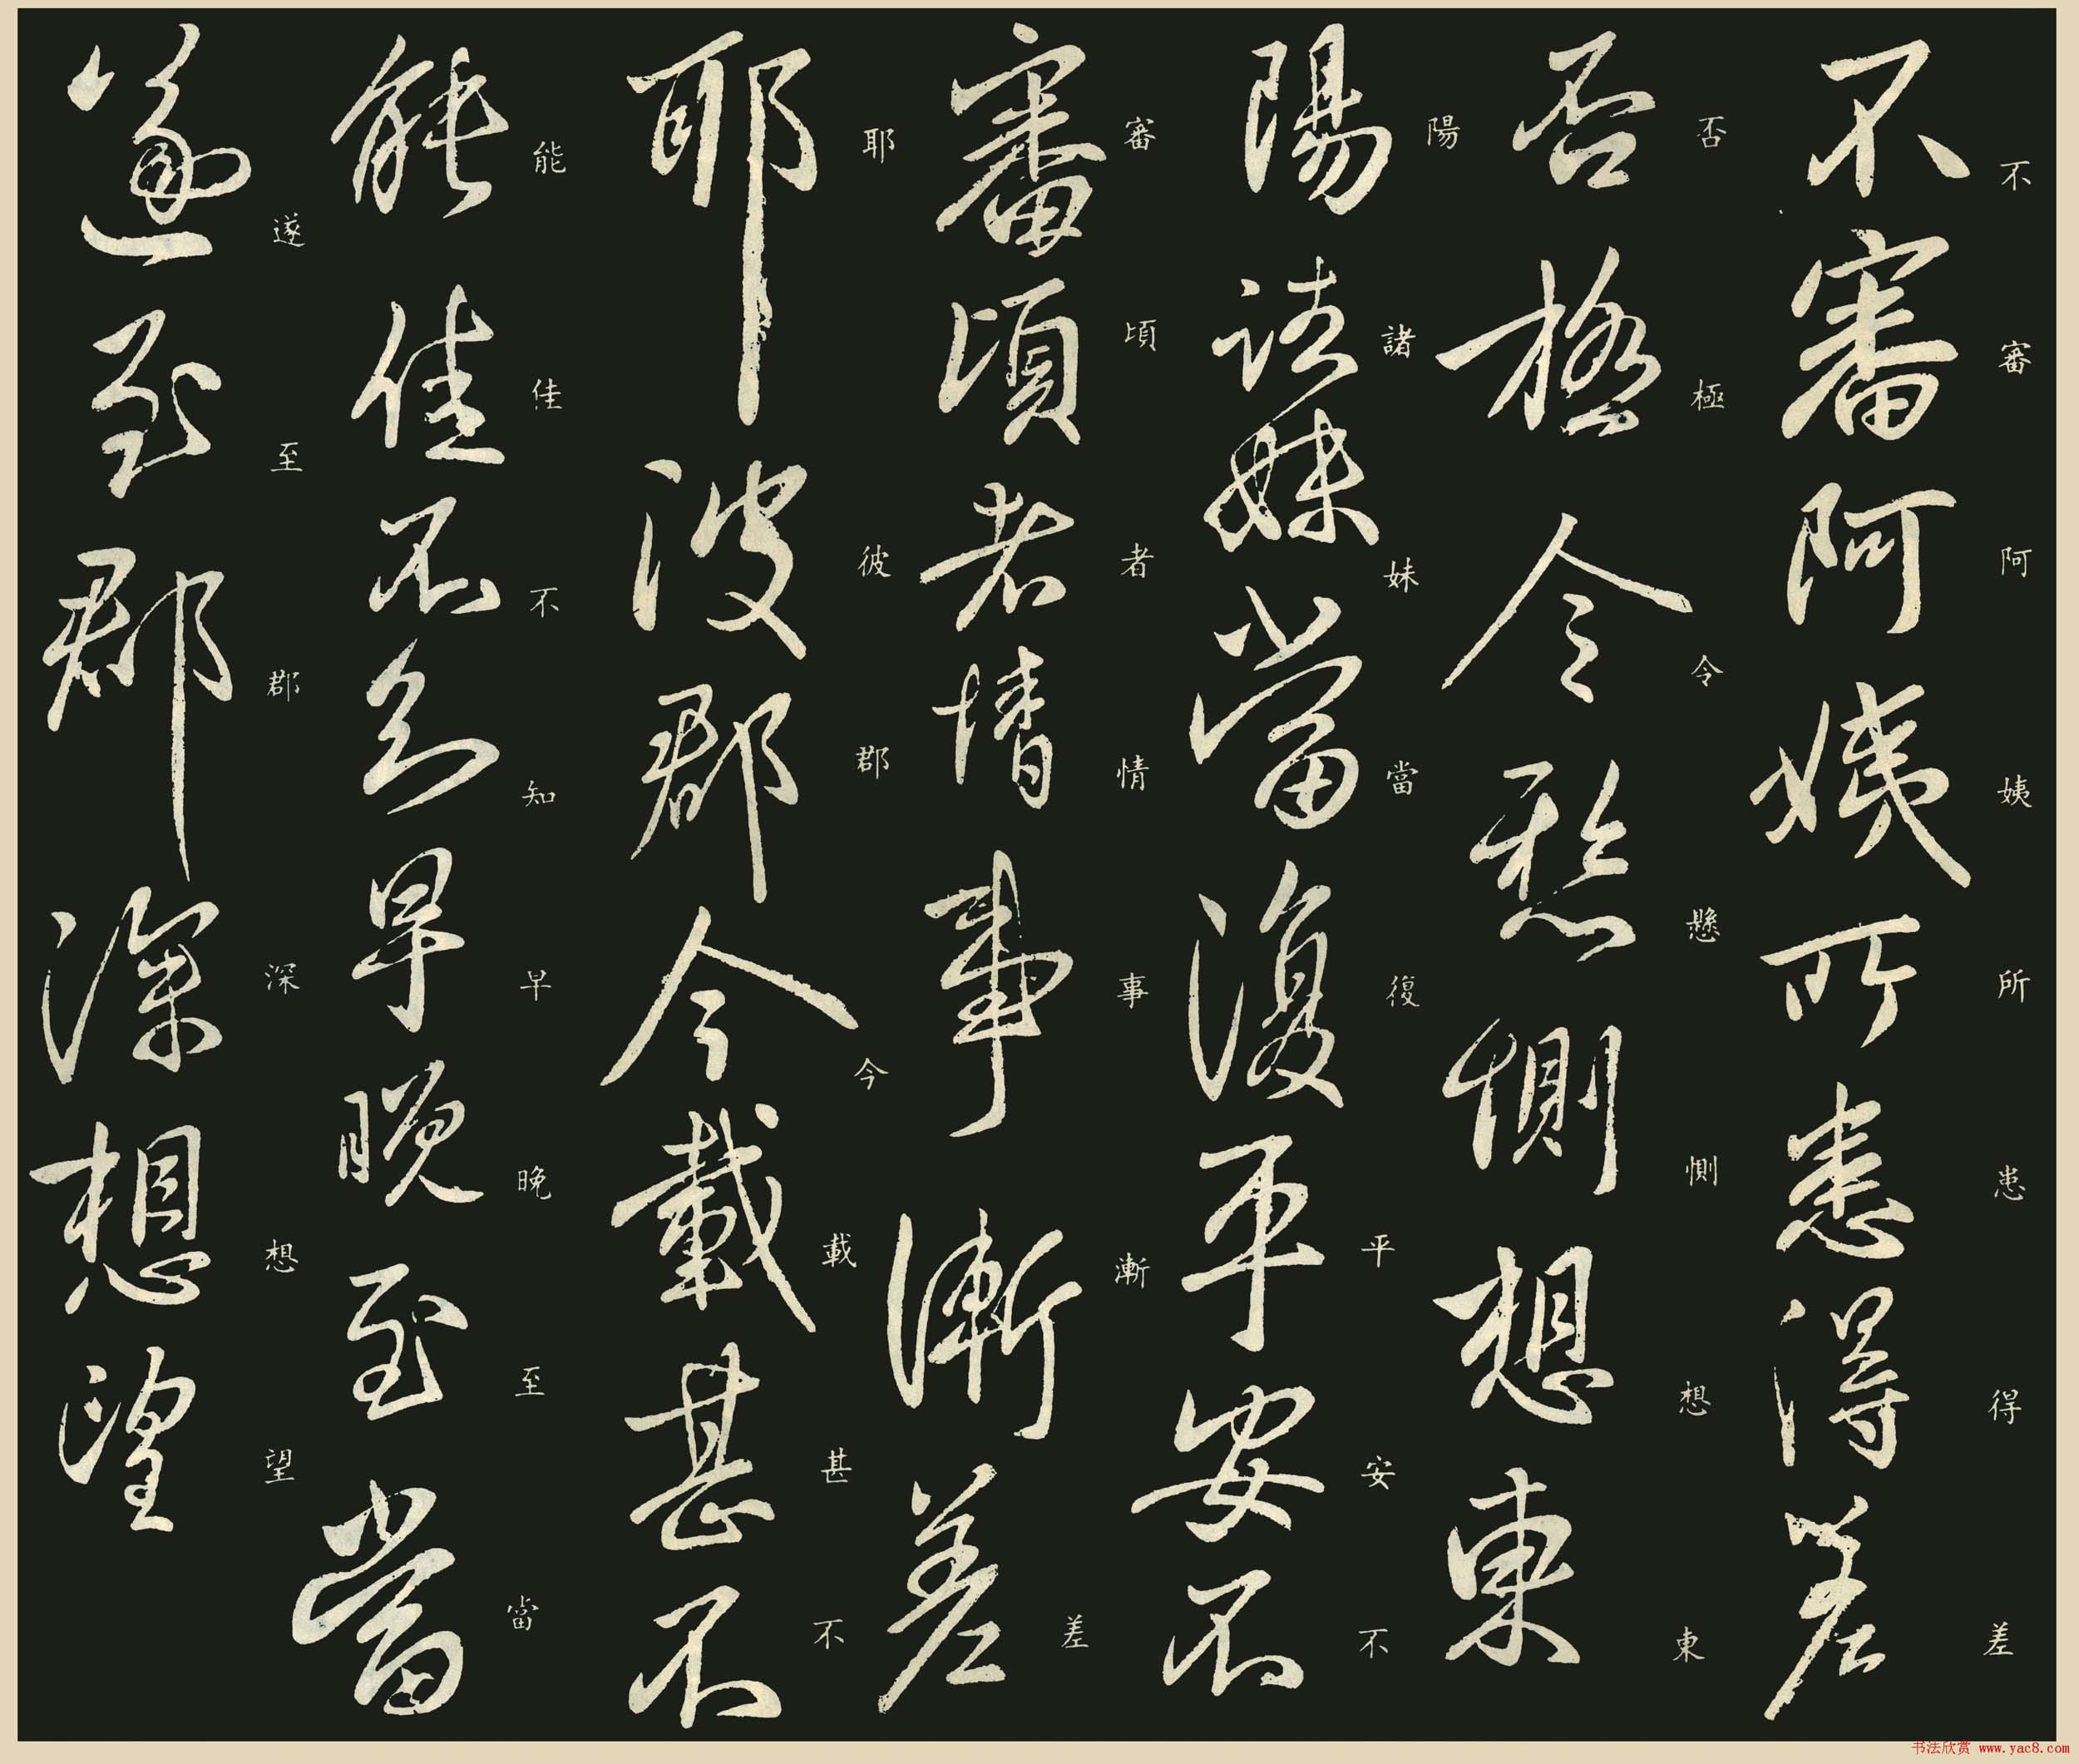 不審阿姨所患得差
否極令懸惻想東
陽諸妹當復平安不
審頃者情事漸差
耶彼郡今載甚不
能佳不知早晚至當
遂至郡深想望
书法欣赏 www.yac8.com